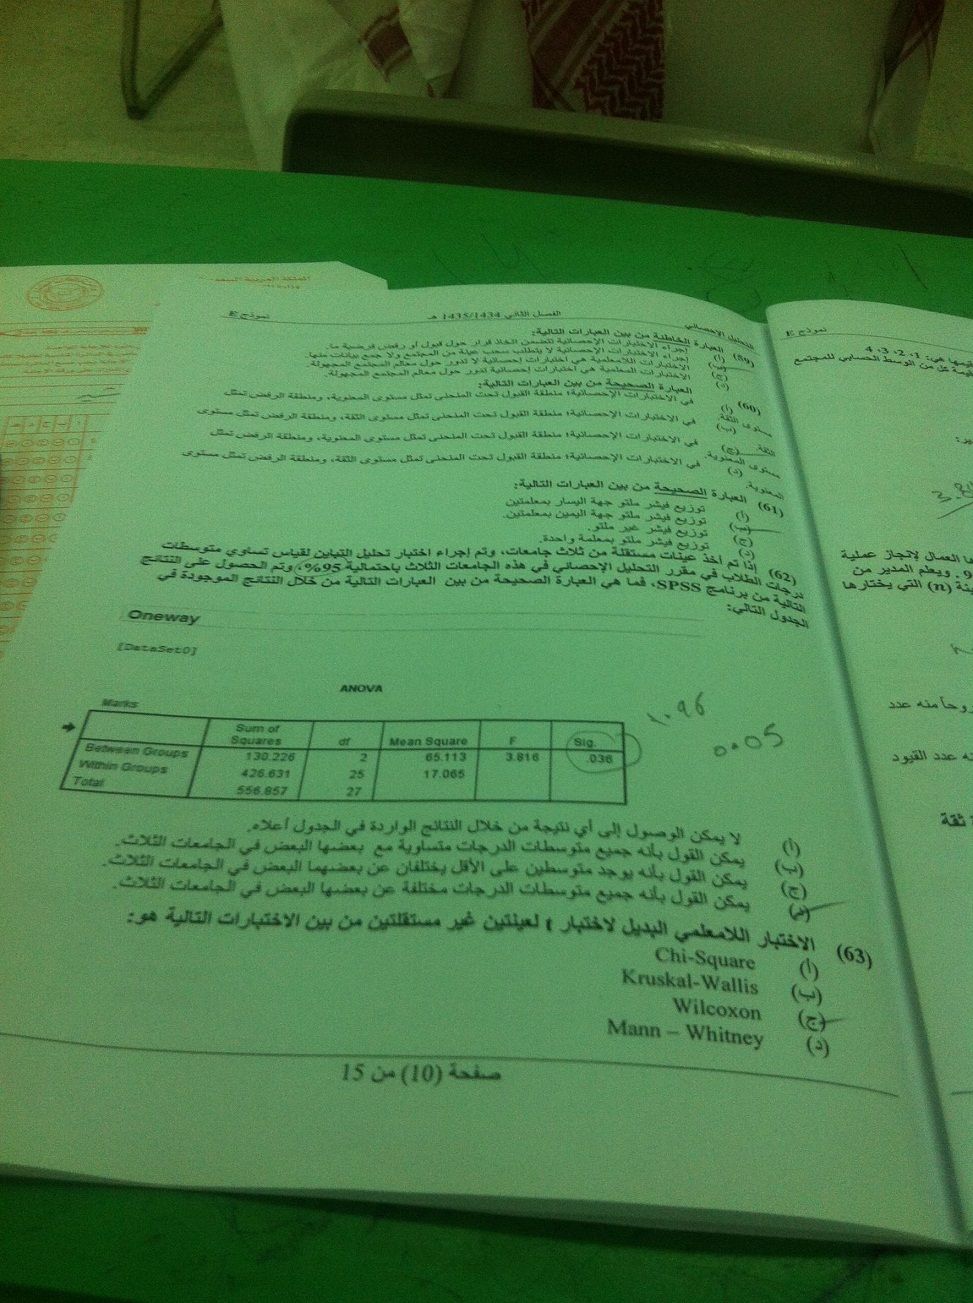 المملكة العربية السعودية
التحليل الإحصائي
الفصل الثاني 1435/1434 هـ
نموذج E
(59) العبارة الخاطئة من بين العبارات التالية:
(أ) إجراء الاختبارات الإحصائية تتضمن اتخاذ قرار حول قبول أو رفض فرضية ما.
(ب) إجراء الاختبارات الإحصائية لا يتطلب سحب عينة من المجتمع ولا جمع بيانات منها.
(ج) الاختبارات اللامعلمية هي اختبارات إحصائية لا تدور حول معالم المجتمع المجهولة.
(د) الاختبارات المعلمية هي اختبارات إحصائية تدور حول معالم المجتمع المجهولة.
(60) العبارة الصحيحة من بين العبارات التالية:
(أ) في الاختبارات الإحصائية؛ منطقة القبول تحت المنحنى تمثل مستوى المعنوية، ومنطقة الرفض تمثل
مستوى الثقة.
(ب) في الاختبارات الإحصائية؛ منطقة القبول تحت المنحنى تمثل مستوى الثقة، ومنطقة الرفض تمثل مستوى
الثقة.
(ج) في الاختبارات الإحصائية؛ منطقة القبول تحت المنحنى تمثل مستوى المعنوية، ومنطقة الرفض تمثل
مستوى المعنوية.
(د) في الاختبارات الإحصائية؛ منطقة القبول تحت المنحنى تمثل مستوى الثقة، ومنطقة الرفض تمثل مستوى
المعنوية.
(61) العبارة الصحيحة من بين العبارات التالية:
(أ) توزيع فيشر ملتو جهة اليسار بمعلمتين
(ب) توزيع فيشر ملتو جهة اليمين بمعلمتين.
(ج) توزيع فيشر غير ملتو.
(د) توزيع فيشر ملتو بمعلمة واحدة.
(62) إذا تم أخذ عينات مستقلة من ثلاث جامعات، وتم إجراء اختبار تحليل التباين لقياس تساوي متوسطات
درجات الطلاب في مقرر التحليل الإحصائي في هذه الجامعات الثلاث باحتمالية 95%، وتم الحصول على النتائج
التالية من برنامج SPSS، فما هي العبارة الصحيحة من بين العبارات التالية من خلال النتائج الموجودة في
الجدول التالي:
Oneway
[DataSet0]
ANOVA
Marks
Sum of Squares df Mean Square F Sig.
Between Groups 130.226 2 65.113 3.816 .036
Within Groups 426.631 25 17.065
Total 556.857 27
1.96
0.05
(أ) لا يمكن الوصول إلى أي نتيجة من خلال النتائج الواردة في الجدول أعلاه.
(ب) يمكن القول بأنه جميع متوسطات الدرجات متساوية مع بعضها البعض في الجامعات الثلاث.
(ج) يمكن القول بأنه يوجد متوسطين على الأقل يختلفان عن بعضهما البعض في الجامعات الثلاث.
(د) يمكن القول بأنه جميع متوسطات الدرجات مختلفة عن بعضها البعض في الجامعات الثلاث.
(63) الاختبار اللامعلمي البديل لاختبار t لعينتين غير مستقلتين من بين الاختبارات التالية هو:
(أ) Chi-Square
(ب) Kruskal-Wallis
(ج) Wilcoxon
(د) Mann – Whitney
صفحة (10) من 15
نموذج E
هي: 1، 2، 3، 4
قيمة كل من الوسط الحسابي للمجتمع
العمال لإنجاز عملية
ويعلم المدير من
(n) التي يختارها
منه عدد
عدد القيود
ثقة